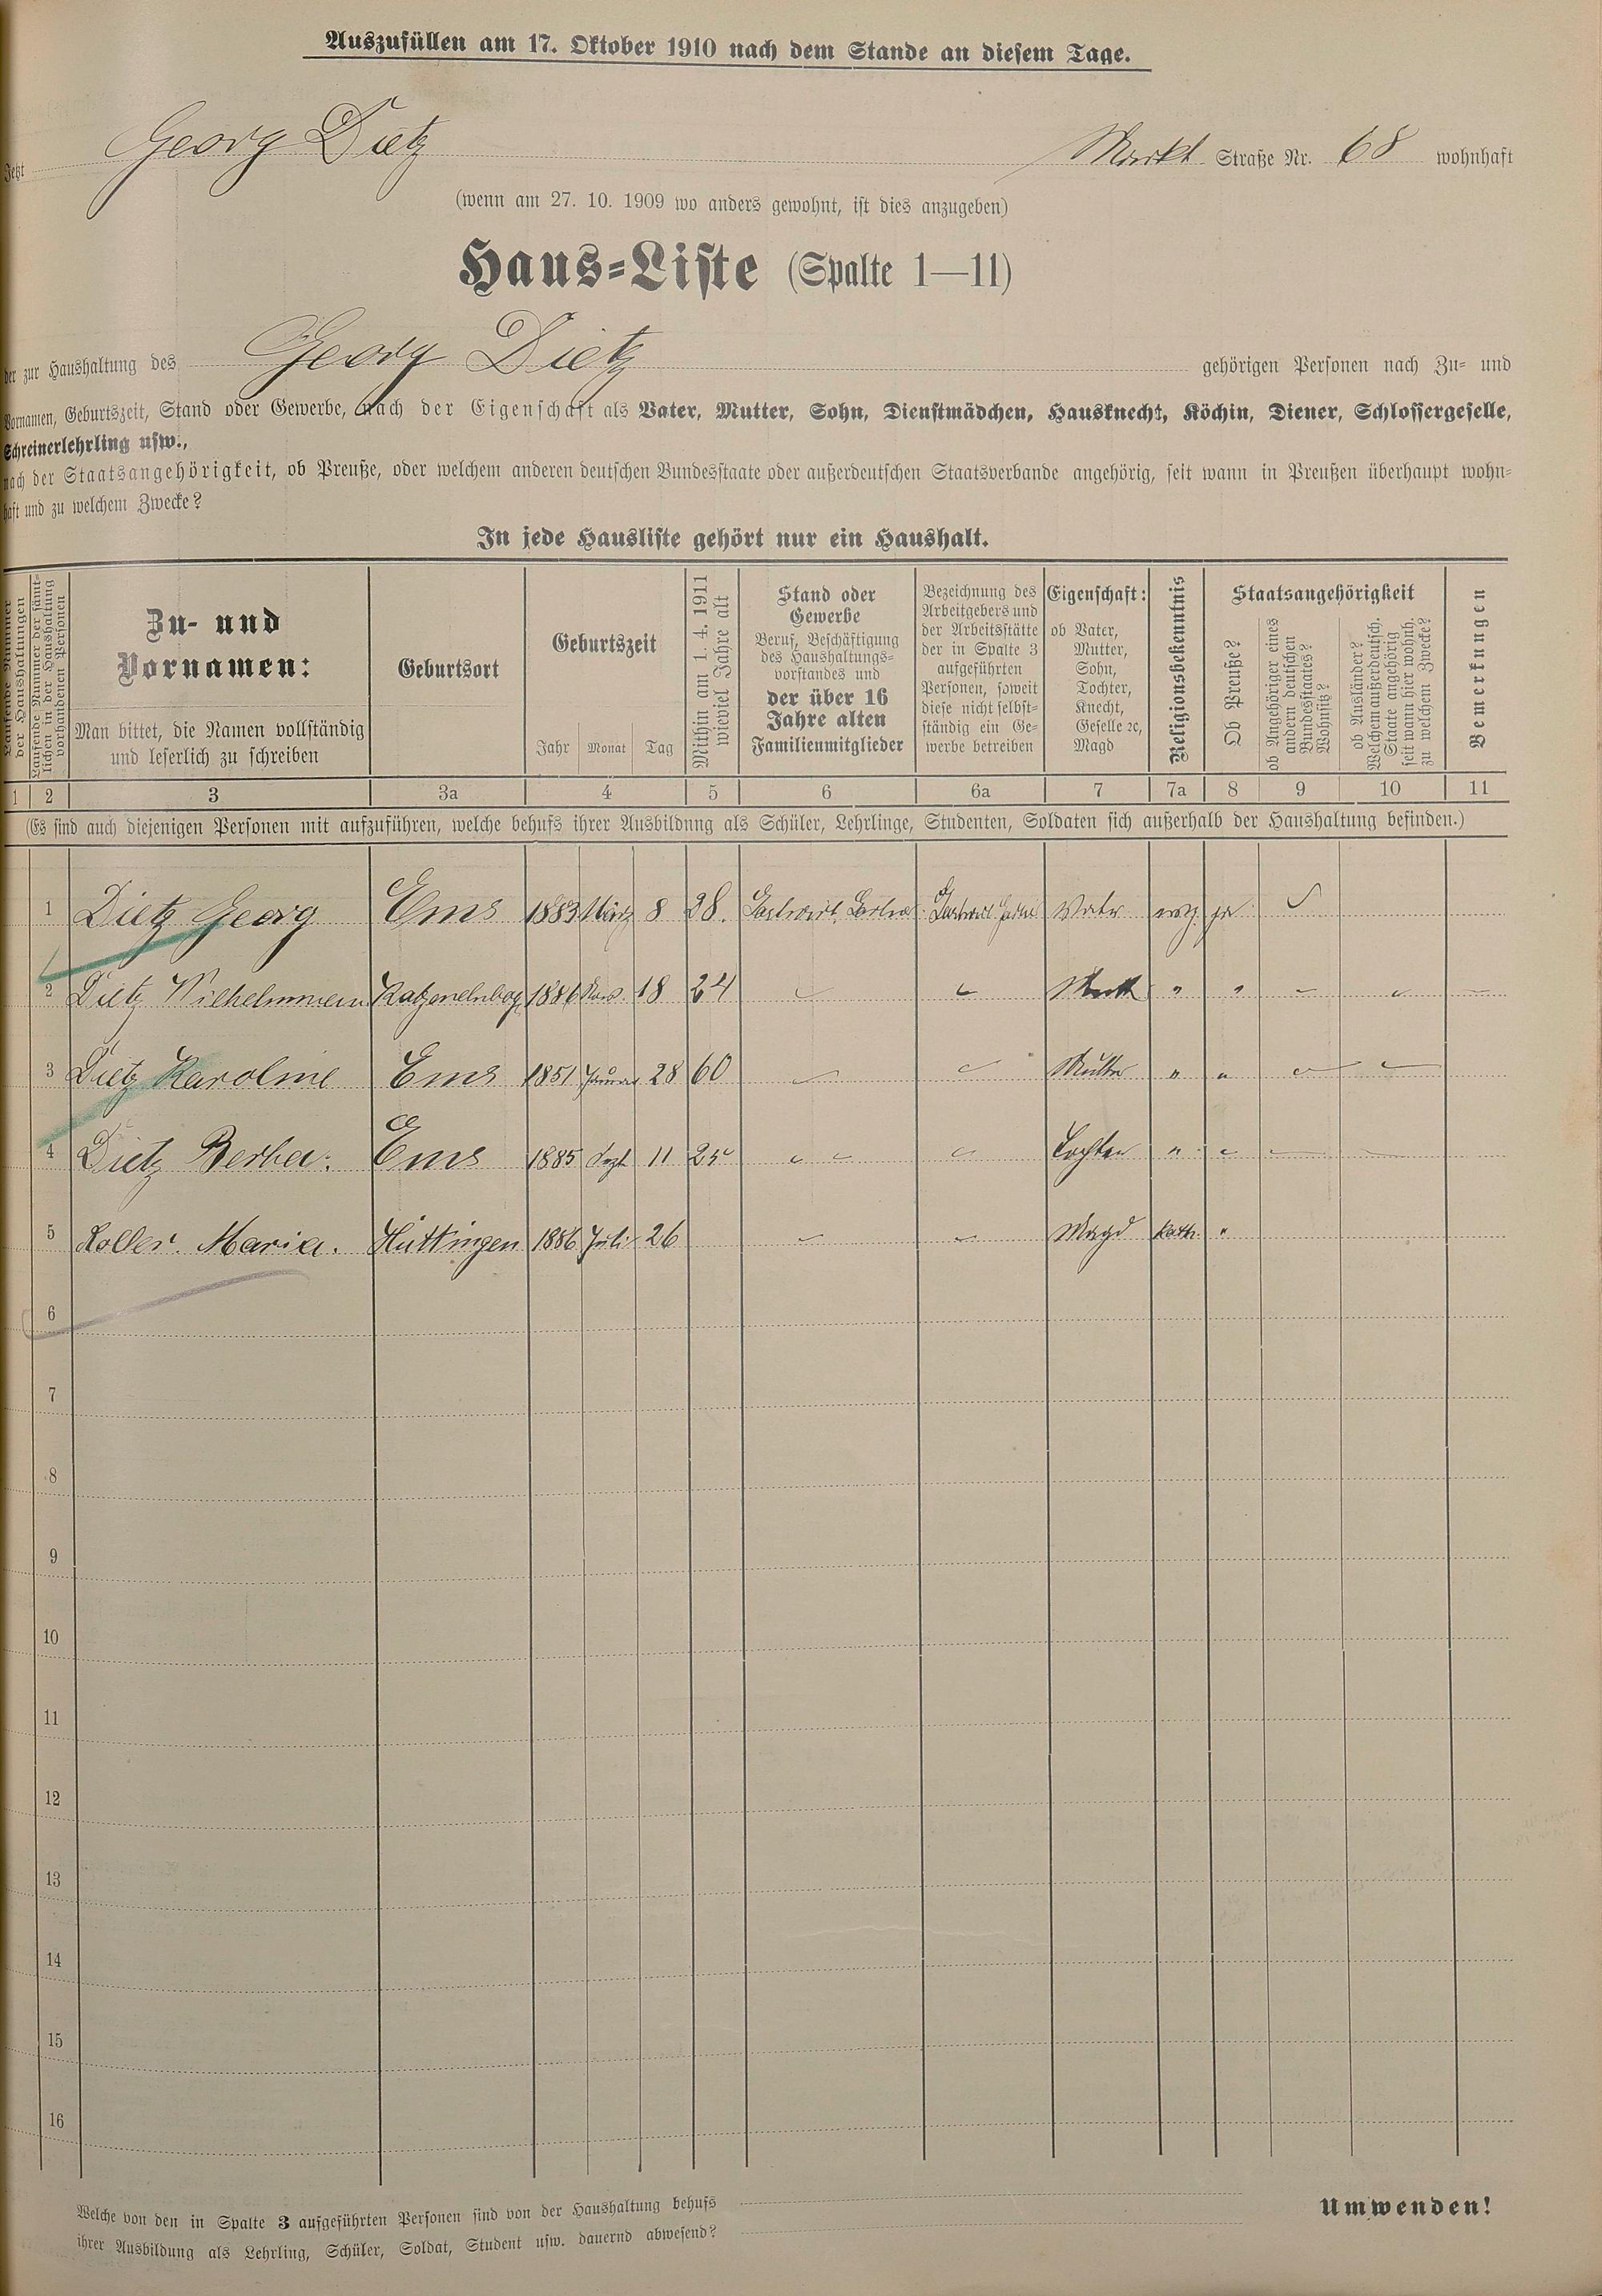 Auszufüllen am 17. Oktober 1910 nach dem Stande an diesem Tage.
Jetzt Georg Dietz Markt Straße Nr. 68 wohnhaft
(wenn am 27. 10. 1909 wo anders gewohnt, ist dies anzugeben)
Haus-Liste (Spalte 1—11)
der zur Haushaltung des Georg Dietz gehörigen Personen nach Zu- und
Vornamen, Geburtszeit, Stand oder Gewerbe, nach der Eigenschaft als Vater, Mutter, Sohn, Dienstmädchen, Hausknecht, Köchin, Diener, Schlossergeselle,
Schreinerlehrling usw.,
nach der Staatsangehörigkeit, ob Preuße, oder welchem anderen deutschen Bundesstaate oder außerdeutschen Staatsverbande angehörig, seit wann in Preußen überhaupt wohn-
haft und zu welchem Zwecke?
In jede Hausliste gehört nur ein Haushalt.
Laufende Nummer
der Haushaltungen
Laufende Nummer der sämt-
lichen in der Haushaltung
vorhandenen Personen
Zu- und
Vornamen:
Man bittet, die Namen vollständig
und leserlich zu schreiben
Geburtsort
Geburtszeit
Jahr Monat Tag
Mithin am 1. 4. 1911
wieviel Jahre alt
Stand oder
Gewerbe
Beruf, Beschäftigung
des Haushaltungs-
vorstandes und
der über 16
Jahre alten
Familienmitglieder
Bezeichnung des
Arbeitgebers und
der Arbeitsstätte
der in Spalte 3
aufgeführten
Personen, soweit
diese nicht selbst-
ständig ein Ge-
werbe betreiben
Eigenschaft:
ob Vater,
Mutter,
Sohn,
Tochter,
Knecht,
Geselle ꝛc,
Magd
Religionsbekenntnis
Staatsangehörigkeit
Ob Preuße?
ob Angehöriger eines
andern deutschen
Bundesstaates?
Wohnsitz?
ob Ausländer?
Welchem außerdeutsch.
Staate angehörig
seit wann hier wohnh.
zu welchem Zwecke?
Bemerkungen
1 2 3 3a 4 5 6 6a 7 7a 8 9 10 11
(Es sind auch diejenigen Personen mit aufzuführen, welche behufs ihrer Ausbildung als Schüler, Lehrlinge, Studenten, Soldaten sich außerhalb der Haushaltung befinden.)
1 Dietz Georg Ems 1883 März 8 28. Vater evg. ja
2 Dietz Katzenelnbog 1886 18 24 " "
3 Dietz Karoline Ems 1851 Januar 28 60 Mutter " "
4 Dietz Ems 1885 Sept 11 25 Tochter "
5 Maria. Hüttingen 1886 Juli 26 Magd kath. "
6
7
8
9
10
11
12
13
14
15
16
Welche von den in Spalte 3 aufgeführten Personen sind von der Haushaltung behufs
ihrer Ausbildung als Lehrling, Schüler, Soldat, Student usw. dauernd abwesend?
Umwenden!